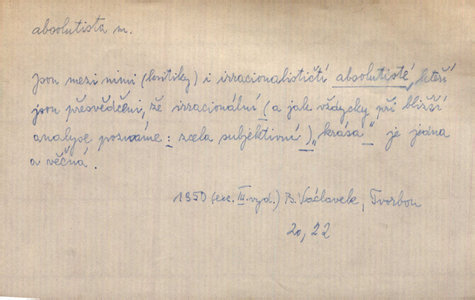 absolutista m.
Jsou mezi nimi (kritiky) i irracionalističtí absolutisté, kteří
jsou přesvědčeni, že irracionální (a jak vždycky při bližší
analyse poznáme: zcela subjektivní) „krása“ je jedna
a věčná.
1950 (exc. III. vyd.) B. Václavek, Tvorbou
20, 22